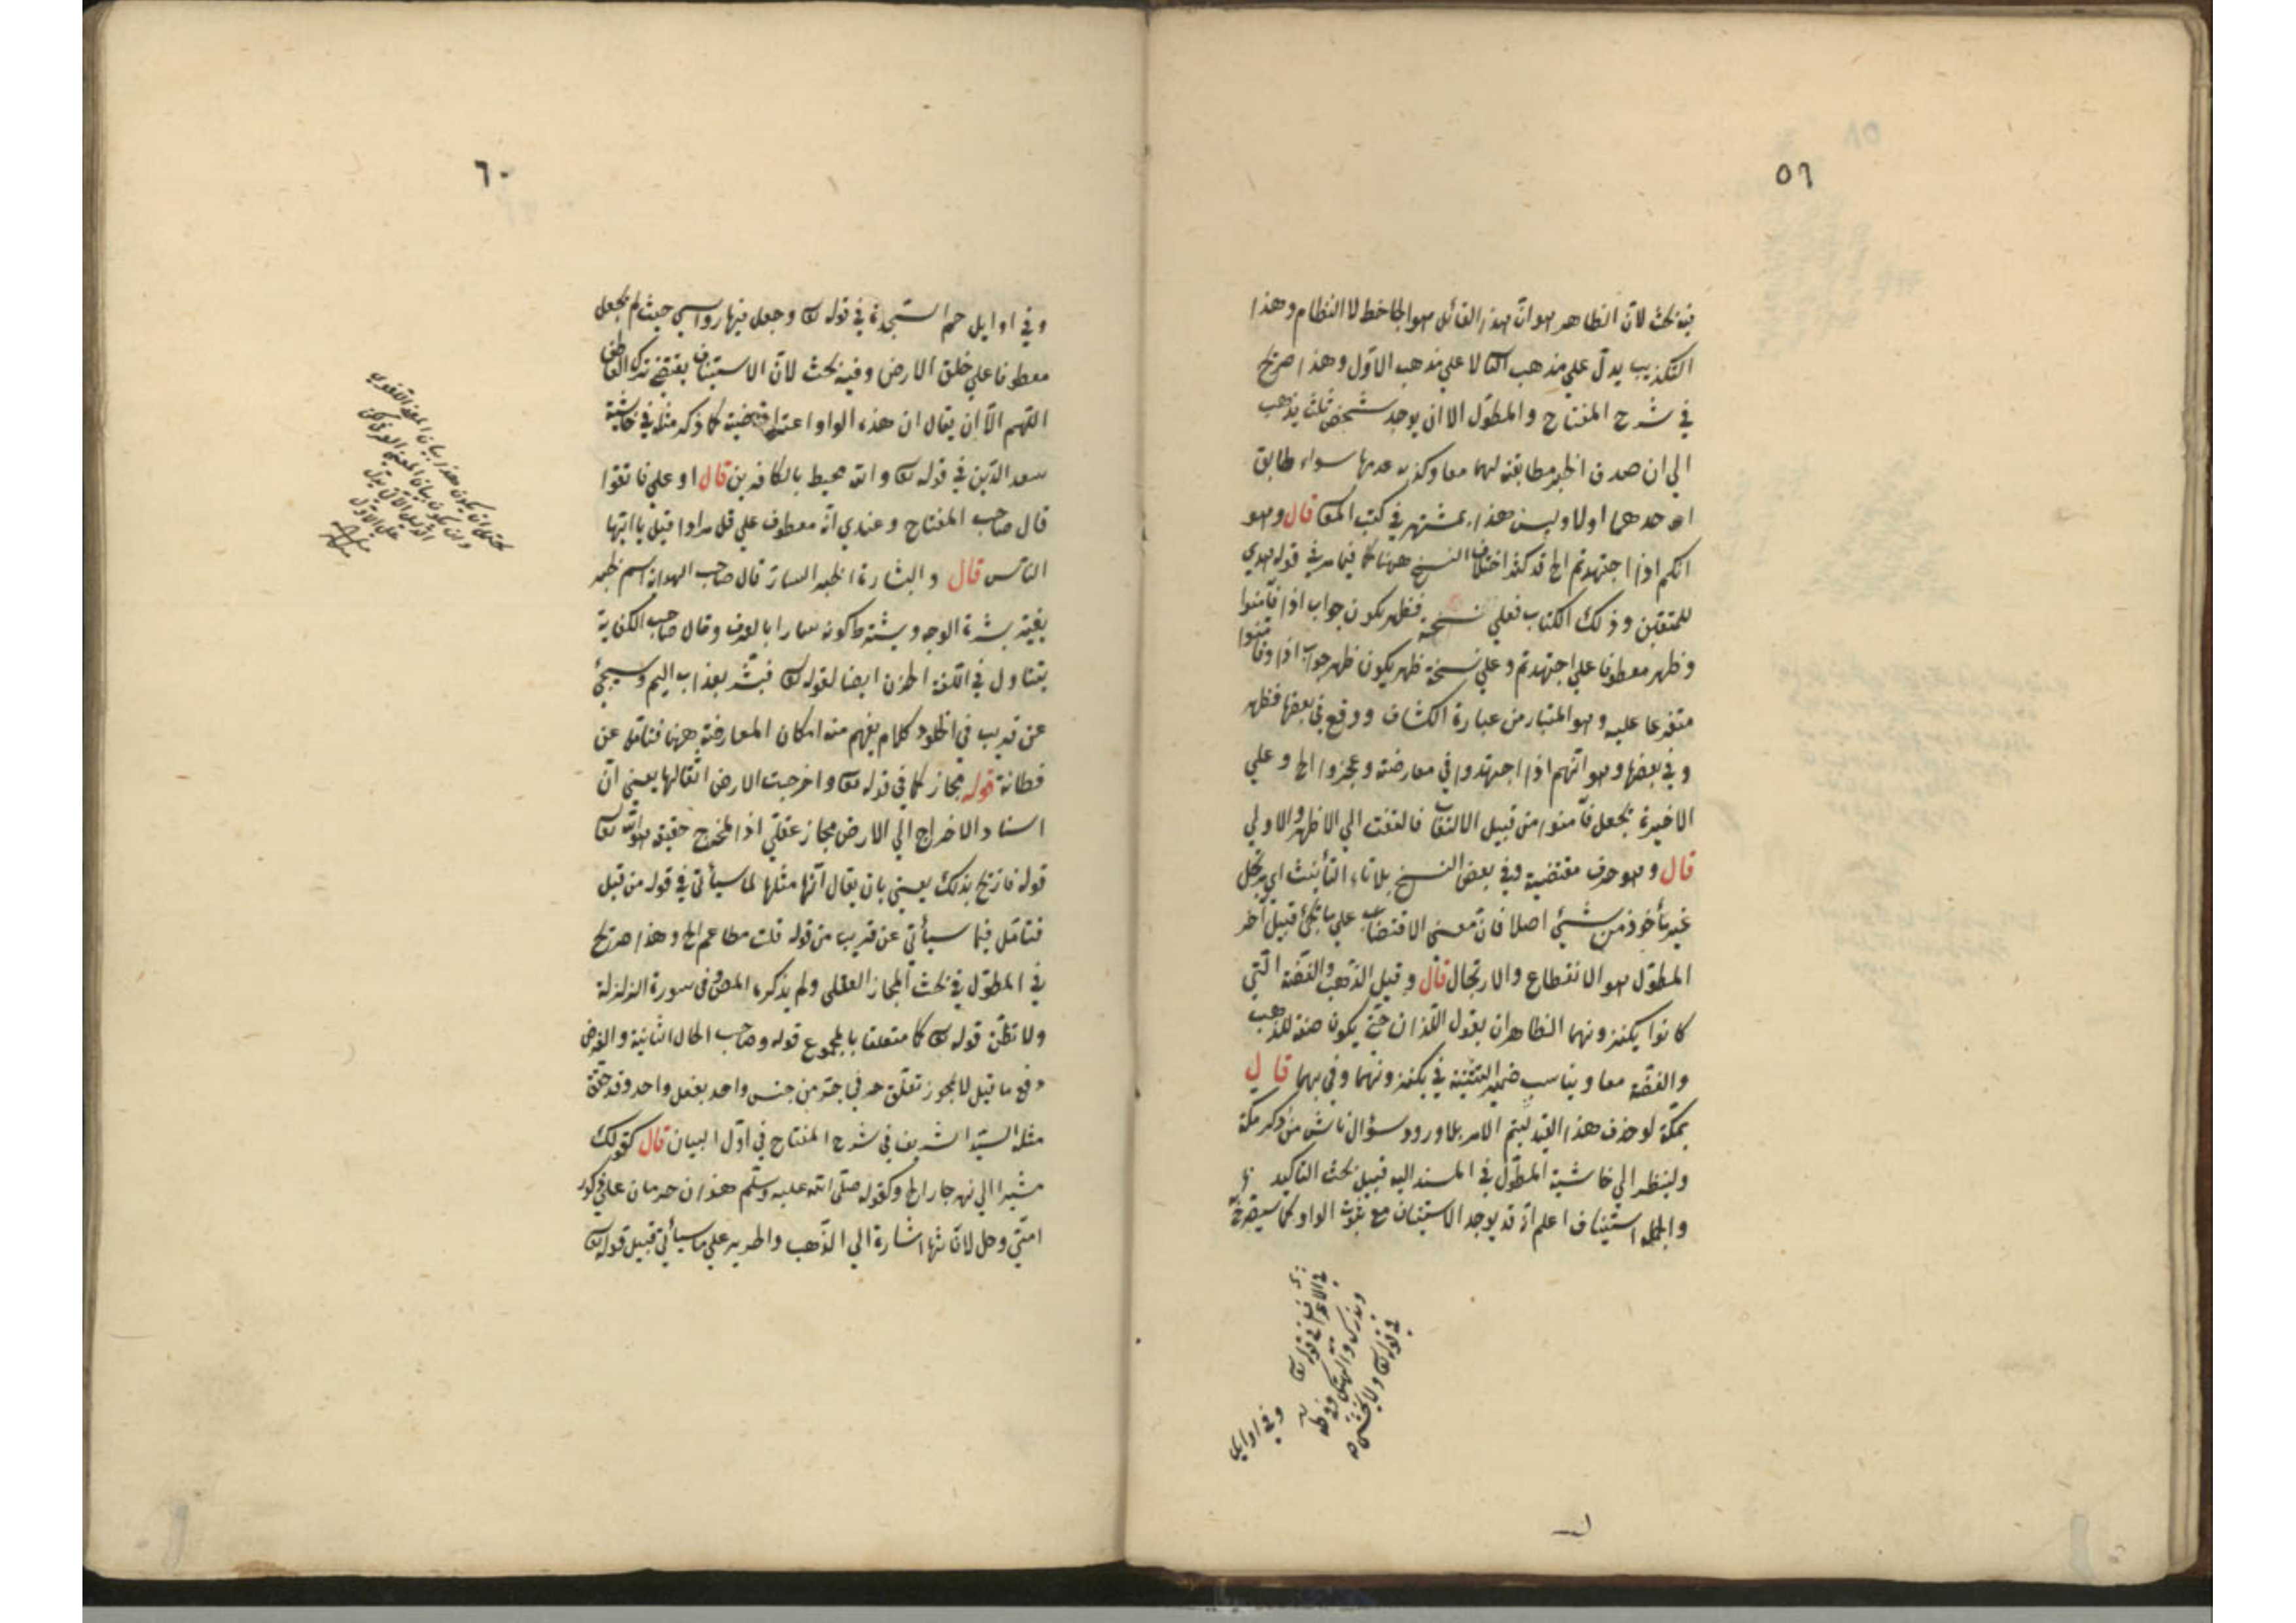 ٥٩
فيه بحث لان الظاهر هو ان هذا القائل هو الجاحظ لا النظام وهذا
التكذيب يدل علي مذهب الثا لا علي مذهب الاول وهذا صريح
في شرح المفتاح والمطول الا ان يوجد شخص ثلث يذهب
الي ان صدق الخبر مطابقته لهما معا وكذبه عدمها سواء طابق
احدهما اولا وليس هذا بمشتهر في كتب المعا قال وهو
انكم اذا اجتهدتم الخ قد كثر اختلاف النسخ ههنا كما فيما مر في قوله هدي
للمتقين وذلك الكتاب فعلي نسخة فظهر يكون جواب اذا فآمنوا
وظهر معطوفا علي اجتهدتم وعلي نسخة ظهر يكون ظهر جواب اذا وفآمنوا
متفرعا عليه وهو المتبادر من عبارة الكشاف ووقع في بعضها فظهر
وفي بعضها وهو انهم اذا اجتهدوا في معارضته وعجزوا الخ وعلي
الاخيرة يجعل فآمنوا من قبيل الالتفات فالتفت الي الاظهر والاولي
قال وهو حرف مقتضبة وفي بعض النسخ بلا تاء التأنيث اي مرتجل
غير مأخوذ من شئ اصلا فان معنى الاقتضاب علي ما يجئ قبيل آخر
المطول هو الانقطاع والارتجال قال وقيل الذهب والفضة التي
كانوا يكنزونهما الظاهر ان يقول اللذان حتي يكون صفة للذهب
والفضة معا ويناسب ضمير التثنية في يكنزونهما وفي بهما قال
بمكة لو حذف هذا القيد ليتم الامر بلا ورود سؤال ناش من ذكر مكة
ولينظر الي حاشية المطول في المسند اليه قبيل بحث التاكيد
والجملة استيناف اعلم انه قد يوجد الاستيناف مع ثبوت الواو كما سيصرح
في قوله تعا ولا تخشى
وفي اوايل
٦٠
وفي اوايل حم السجدة في قوله تع وجعل فيها رواسي حيث لم يجعل
معطوفا علي خلق الارض وفيه بحث لان الاستيناف يقتضي ترك العاطف
اللهم الا ان يقال ان هذه الواو اعتراضية كما ذكر مثله في حاشية
سعد الدين في قوله تع والله محيط بالكافرين قال او علي فاتقوا
قال صاحب المفتاح وعندي انه معطوف علي قل مرادا قبل يا ايها
الناس قال والبشارة الخبر السار قال صاحب الهداية اسم لخبر
يغير بشرة الوجه ويشترط كونه سارا بالعرف وقال صاحب الكفاية
يتناول في اللغة الحزن ايضا لقوله تع فبشر بعذاب اليم وسيجئ
عن قريب في الخلود كلام يفهم منه امكان المعارضة ههنا فتامل عن
فطانة قوله مجاز كما في قوله تعا واخرجت الارض اثقالها يعني ان
اسناد الاخراج الي الارض مجاز عقلي اذ المخرج حقيقة هو الله تعا
قوله فازيح بذلك يعني بان يقال انها مثلها لما سيأتي في قوله من قبل
فتامل فيما سيأتي عن قريب من قوله قلت مطاعم الخ وهذا صريح
في المطول في بحث المجاز العقلي ولم يذكره المص في سورة الزلزلة
ولا تظن قوله تع كا متعلقا بالمجموع قوله وصاحب الحال الثانية والغرض
دفع ما قيل لا يجوز تعلق حرفي جر من جنس واحد بفعل واحد وقد حقق
مثله السيد الشريف في شرح المفتاح في اول البيان قال كقولك
مشيرا الي نهر جار الخ وكقوله صلى الله عليه وسلم هذان حرمان علي ذكور
امتي وحل لاناثها اشارة الي الذهب والحرير علي ما سيأتي قبيل قوله تع